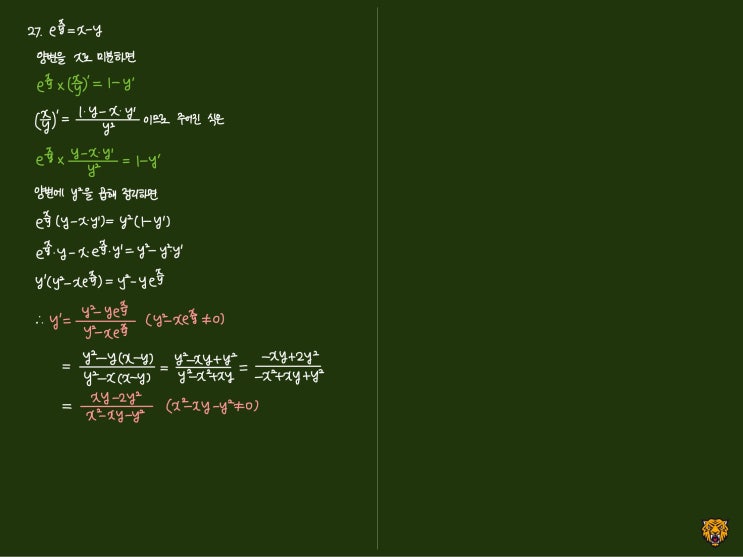 27. e^(x/y) = x-y
양변을 x로 미분하면
e^(x/y) × (x/y)' = 1-y'
(x/y)' = (1·y-x·y')/y² 이므로 주어진 식은
e^(x/y) × (y-x·y')/y² = 1-y'
양변에 y²을 곱해 정리하면
e^(x/y) (y-x·y') = y²(1-y')
e^(x/y)·y-x·e^(x/y)·y' = y²-y²y'
y'(y²-xe^(x/y)) = y²-ye^(x/y)
∴ y' = (y²-ye^(x/y))/(y²-xe^(x/y)) (y²-xe^(x/y)≠0)
= (y²-y(x-y))/(y²-x(x-y)) = (y²-xy+y²)/(y²-x²+xy) = (-xy+2y²)/(-x²+xy+y²)
= (xy-2y²)/(x²-xy-y²) (x²-xy-y²≠0)